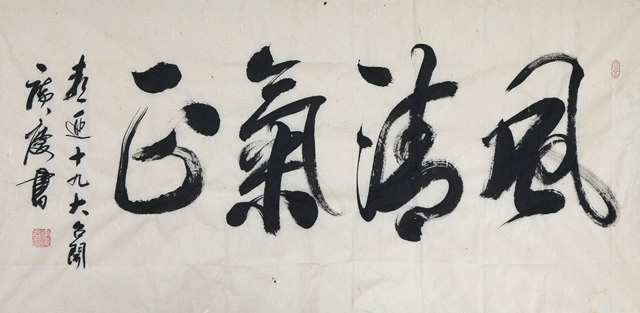 風清氣正
喜迎十九大召開
廣慶書